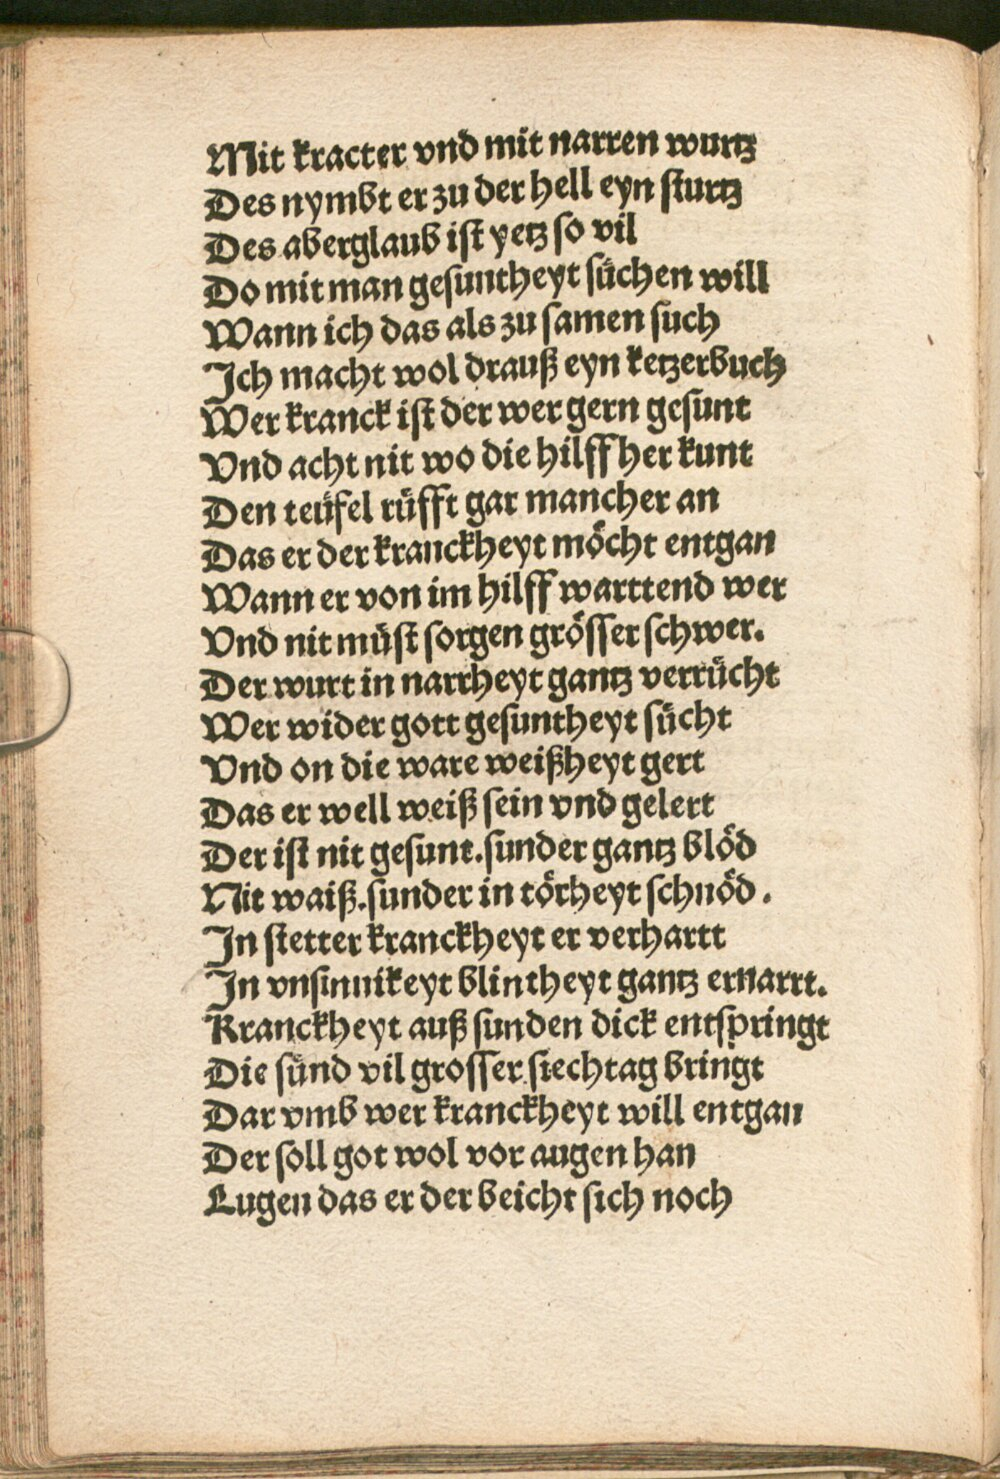 Mit kracter vnd mit narren wurtz
Des nymbt er zu der hell eyn sturtz
Des aberglaub ist yetz so vil
Do mit man gesuntheyt süchen will
Wann ich das als zu samen such
Ich macht wol drauß eyn ketzerbuch
Wer kranck ist der wer gern gesunt
Vnd acht nit wo die hilff her kunt
Den teüfel rüfft gar mancher an
Das er der kranckheyt möcht entgan
Wann er von im hilff warttend wer
Vnd nit müst sorgen grösser schwer.
Der wurt in narrheyt gantz verrücht
Wer wider gott gesuntheyt sücht
Vnd on die ware weißheyt gert
Das er well weiß sein vnd gelert
Der ist nit gesunt. sunder gantz blöd
Nit waiß. sunder in törheyt schnöd.
In stetter kranckheyt er verhartt
In vnsinnikeyt blintheyt gantz ernarrt.
Kranckheyt auß sunden dick entspringt
Die sünd vil grosser siechtag bringt
Dar vmb wer kranckheyt will entgan
Der soll got wol vor augen han
Lugen das er der beicht sich noch